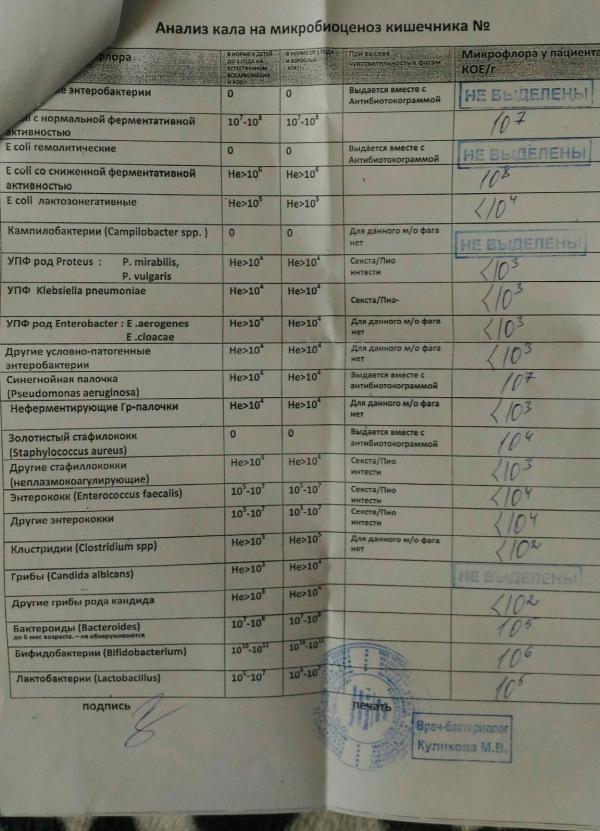 Анализ кала на микробиоценоз кишечника №
флора
В НОРМЕ У ДЕТЕЙ
ДО 1 ГОДА НА
ЕСТЕСТВЕННОМ
ВСКАРМЛИВАНИИ
КОЕ/Г
В НОРМЕ ОТ 1 ГОДА
И ВЗРОСЛЫЕ
КОЕ/Г
При высеве
чувствительность к фагам
Микрофлора у пациента
КОЕ/г
энтеробактерии 0 0 Выдается вместе с
Антибиотокограммой
НЕ ВЫДЕЛЕНЫ
coli с нормальной ферментативной
активностью 10⁷-10⁸ 10⁷-10⁸ 10⁷
E coli гемолитические 0 0 Выдается вместе с
Антибиотокограммой
НЕ ВЫДЕЛЕНЫ
E coli со сниженной ферментативной
активностью Не>10⁶ Не>10⁶ 10⁸
E coli лактозонегативные Не>10⁵ Не>10⁵ <10⁴
Кампилобактерии (Campilobacter spp. ) 0 0 Для данного м/о фага
нет
НЕ ВЫДЕЛЕНЫ
УПФ род Proteus : P. mirabilis,
P. vulgaris
Не>10⁴ Не>10⁴ Секста/Пио
интести
<10³
УПФ Klebsiella pneumoniae Не>10⁴ Не>10⁴ Секста/Пио- <10³
УПФ род Enterobacter : E .aerogenes
E .cloacae
Не>10⁴ Не>10⁴ Для данного м/о фага
нет
<10³
Другие условно-патогенные
энтеробактерии
Не>10⁴ Не>10⁴ Для данного м/о фага
нет
<10³
Синегнойная палочка
(Pseudomonas aeruginosa)
Не>10⁴ Не>10⁴ Выдается вместе с
антибиотокограммой
10⁷
Неферментирующие Гр-палочки Не>10⁴ Не>10⁴ Для данного м/о фага
нет
<10³
Золотистый стафилококк
(Staphylococcus aureus)
0 0 Выдается вместе с
антибиотокограммой
10⁴
Другие стафиллококки
(неплазмокоагулирующие)
Не>10⁴ Не>10⁴ Секста/Пио
интести
<10³
Энтерококк (Enterococcus faecalis) 10⁵-10⁷ 10⁵-10⁷ Секста/Пио
интести
<10⁴
Другие энтерококки 10⁵-10⁷ 10⁵-10⁷ Секста/Пио
интести
<10⁴
Клостридии (Clostridium spp) Не>10³ Не>10⁵ Для данного м/о фага
нет
<10²
Грибы (Candida albicans) Не>10³ Не>10⁴ НЕ ВЫДЕЛЕНЫ
Другие грибы рода кандида Не>10³ Не>10⁴ <10²
Бактероиды (Bacteroides) 10⁷-10⁸ 10⁷-10⁸ 10⁵
до 6 мес возраста. – не обнаруживаются
Бифидобактерии (Bifidobacterium) 10¹⁰-10¹¹ 10⁶
Лактобактерии (Lactobacillus) 10⁶-10⁷ 10⁶-10⁷ 10⁵
подпись печать
Врач-бактериолог
Куликова М.В.